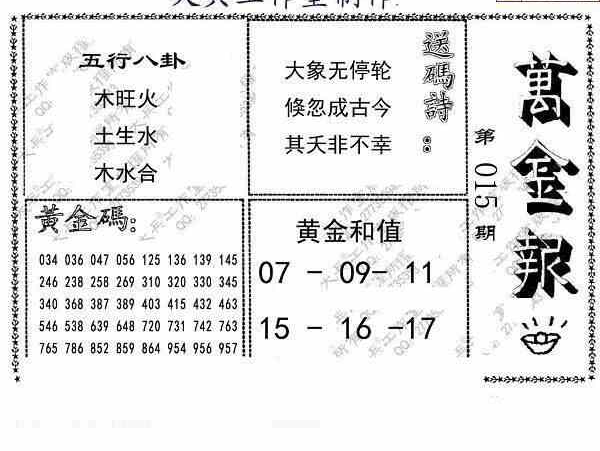 萬金报
第015期
送碼詩：
大象无停轮
倏忽成古今
其夭非不幸
五行八卦
木旺火
土生水
木水合
黃金碼：
034 036 047 056 125 136 139 145
246 238 258 269 310 320 330 345
340 368 387 389 403 415 432 463
546 538 639 648 720 731 742 763
765 786 852 859 864 954 956 957
黄金和值
07 - 09- 11
15 - 16 -17